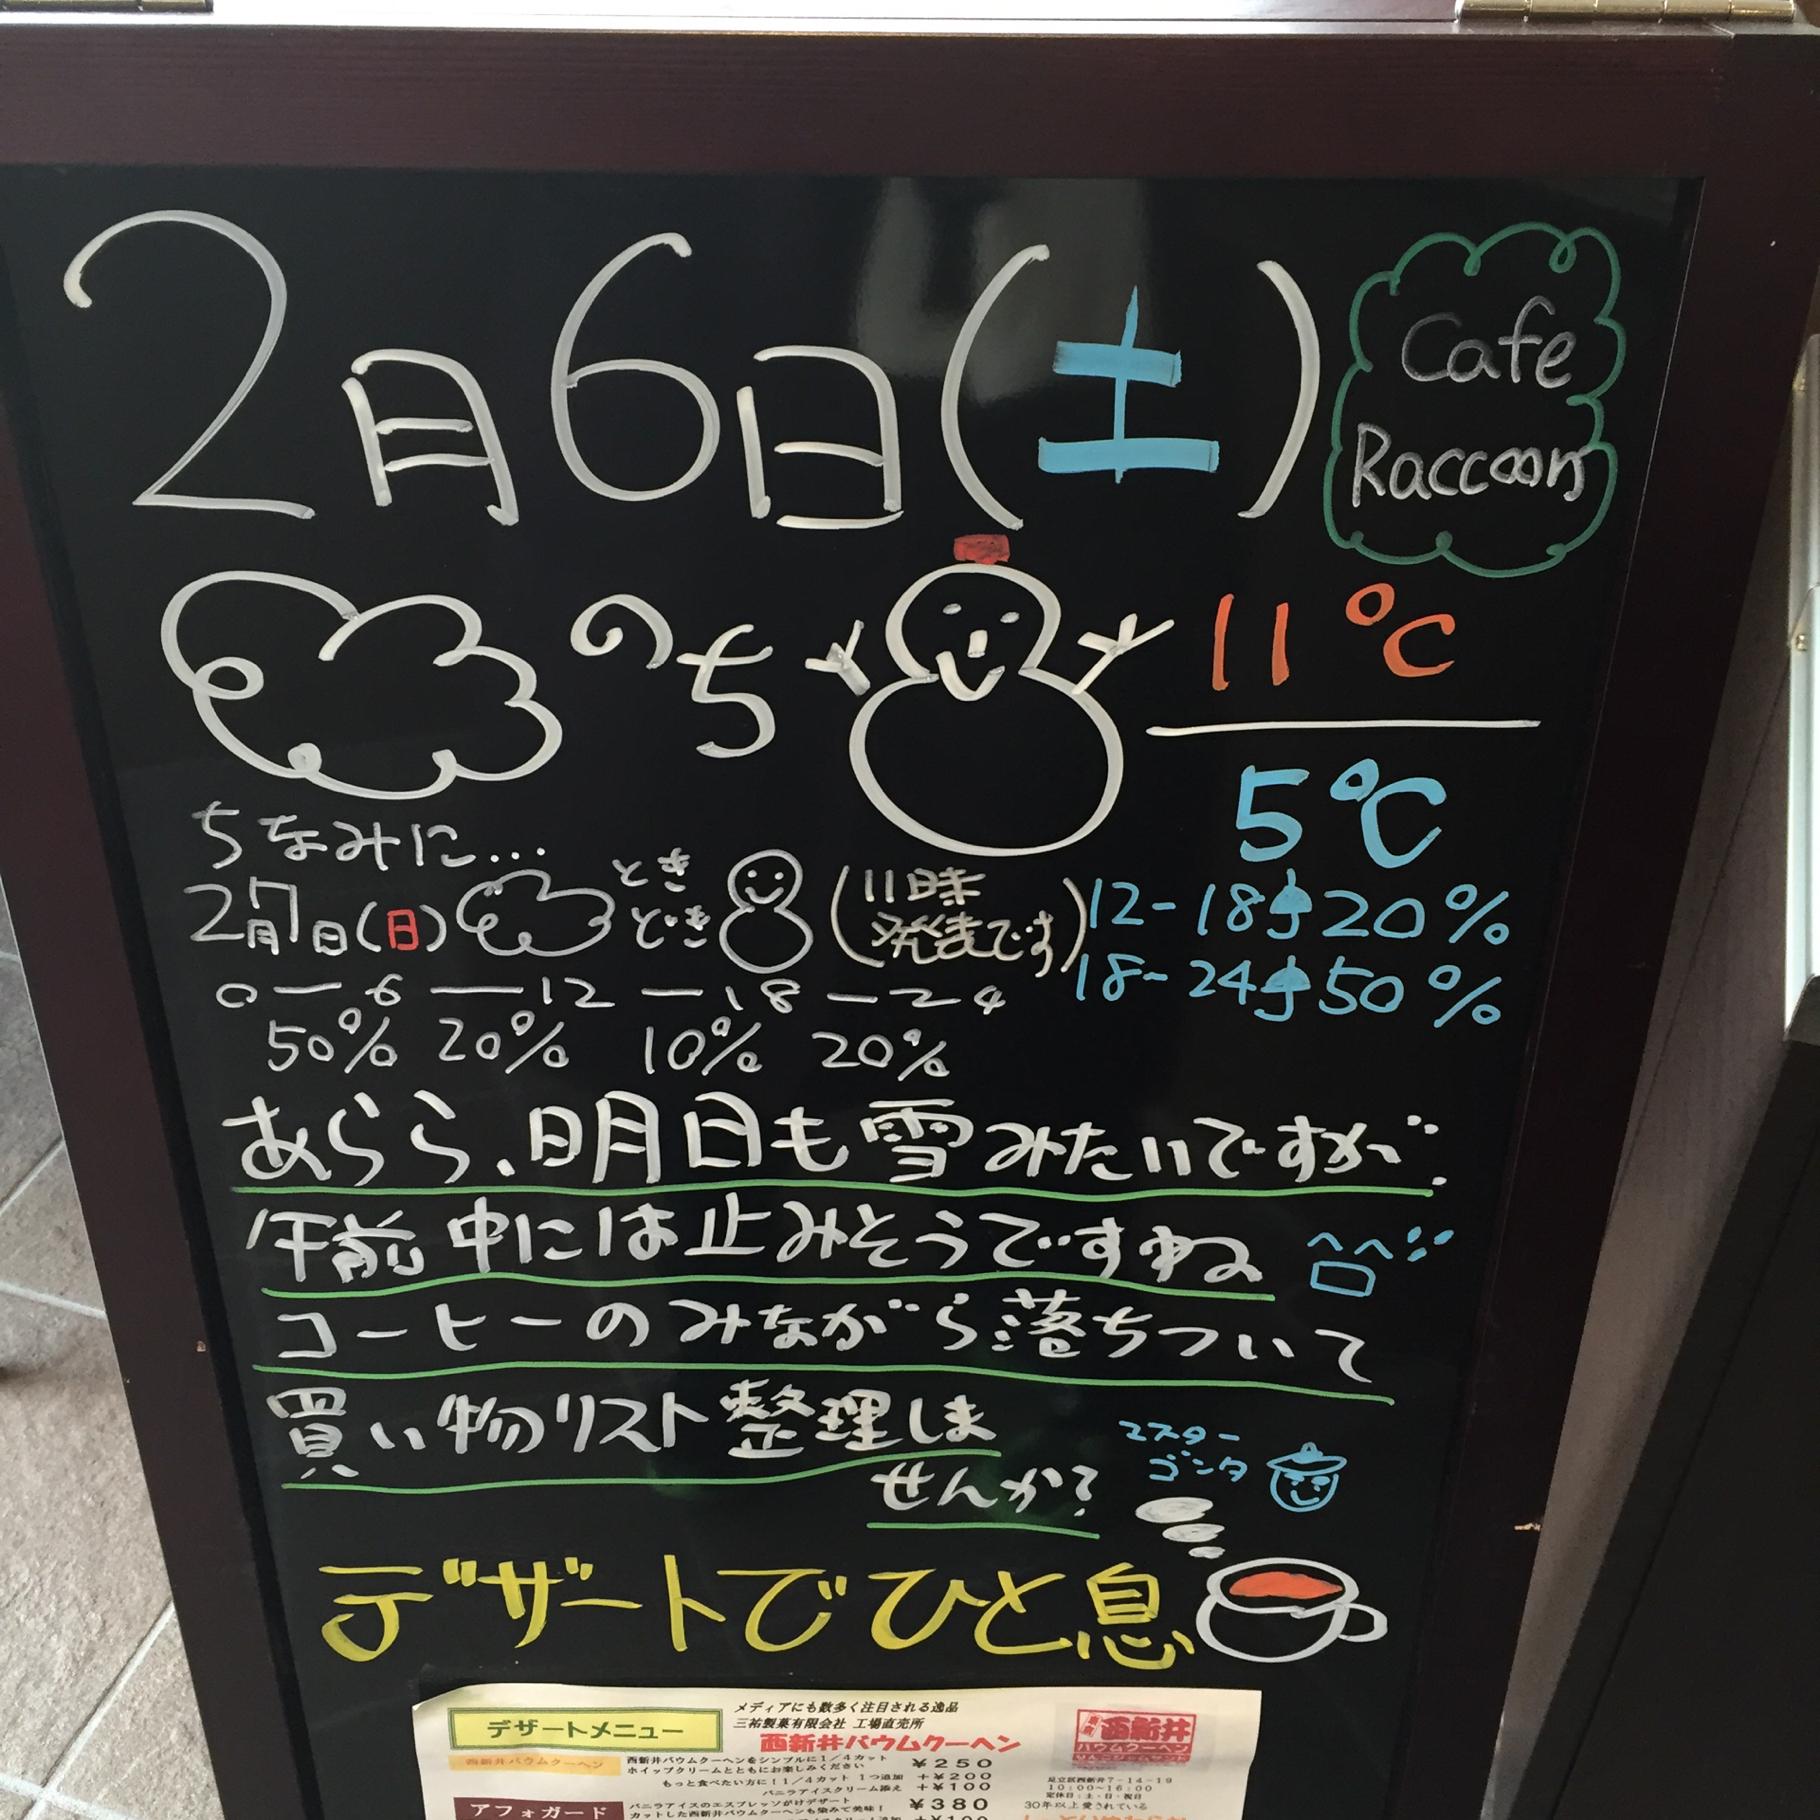 2月6日(土)
Cafe
Raccoon
のち
11℃
5℃
ちなみに...
2月7日(日)
とき
どき
(11時
発表です)
12-18 20%
18-24 50%
0―6―12―18―24
50% 20% 10% 20%
あらら、明日も雪みたいですが、
午前中には止みそうですね
コーヒーのみながら落ちついて
買い物リスト整理しま
せんか?
マスター
ゴンタ
デザートでひと息
メディアにも数多く注目される逸品
デザートメニュー
三祐製菓有限会社 工場直売所
西新井バウムクーヘン
西新井
バウムクーヘン
西新井バウムクーヘン
西新井バウムクーヘンをシンプルに1/4カット
ホイップクリームとともにお楽しみください
¥250
もっと食べたい方に!1/4カット 1つ追加 +¥200
バニラアイスクリーム添え +¥100
足立区西新井7-14-19
10:00~16:00
定休日:土・日・祝日
30年以上愛されている
アフォガード
バニラアイスのエスプレッソがけデザート
カットした西新井バウムクーヘンも染みて美味!
¥380
+¥100